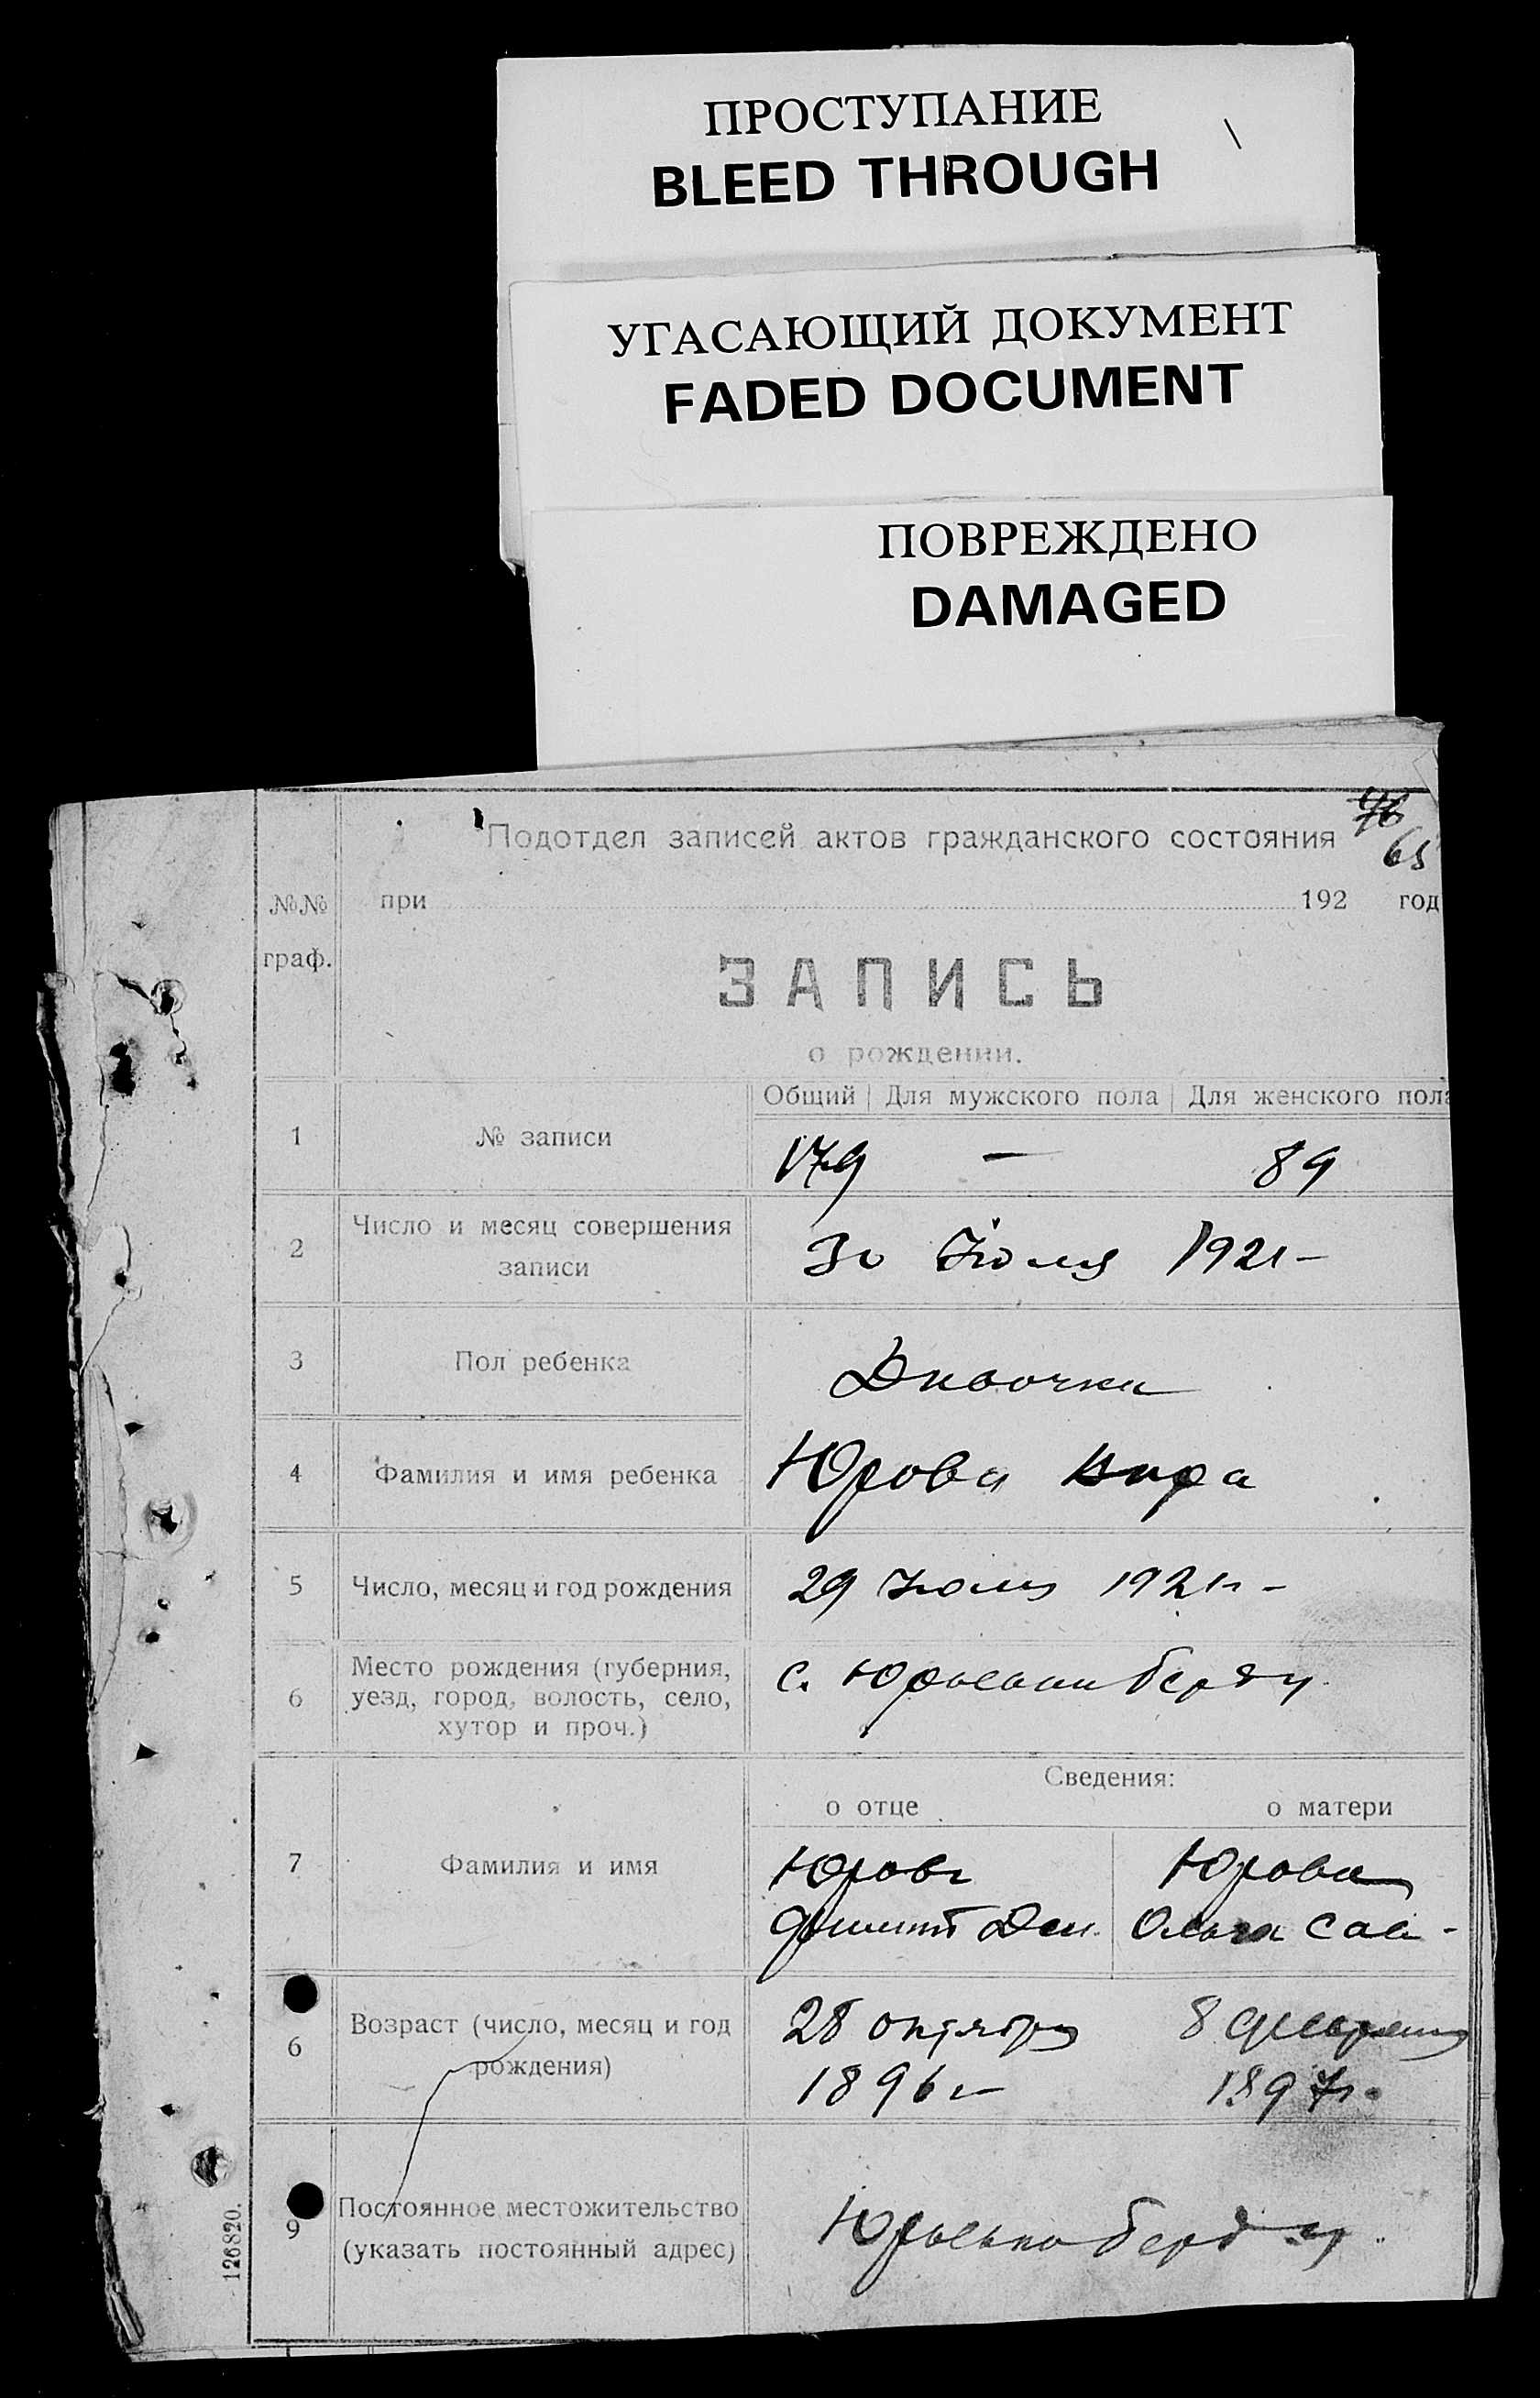 ПРОСТУПАНИЕ
BLEED THROUGH
УГАСАЮЩИЙ ДОКУМЕНТ
FADED DOCUMENT
ПОВРЕЖДЕНО
DAMAGED
76
65
Подотдел записей актов гражданского состояния
№№ граф.
при 192 год
ЗАПИСЬ
о рождении.
Общий Для мужского пола Для женского пола
1 № записи 179 — 89
2 Число и месяц совершения записи 30 Июля 1921
3 Пол ребенка Дивочка
4 Фамилия и имя ребенка Юрова
5 Число, месяц и год рождения 29 Июля 1921 г.
6 Место рождения (губерния, уезд, город, волость, село, хутор и проч.) с.
Сведения:
о отце о матери
7 Фамилия и имя Юров Юрова
Ольга
6 Возраст (число, месяц и год рождения) 28 октября 1896 г. 8 февраля 1897 г.
9 Постоянное местожительство (указать постоянный адрес)
126820.